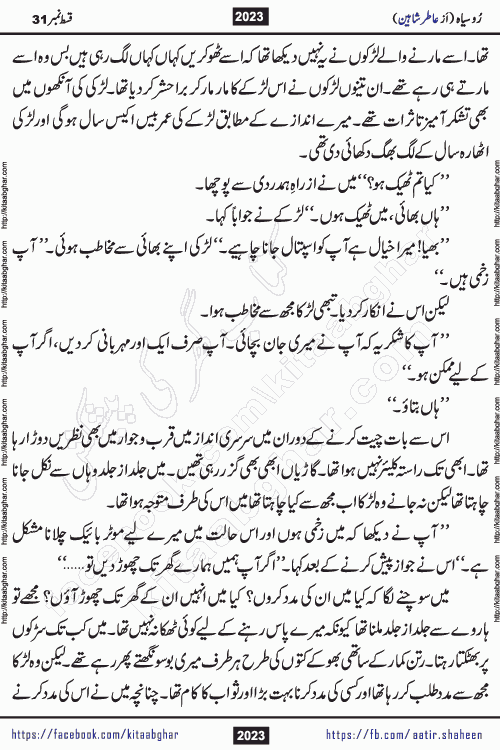 رُوسیاہ (از عاطر شاہین)
2023
قسط نمبر 31
تھا۔ اسے مارنے والے لڑکوں نے یہ نہیں دیکھا تھا کہ اسے ٹھوکریں کہاں کہاں لگ رہی ہیں بس وہ اسے
مارتے ہی رہے تھے۔ ان تینوں لڑکوں نے اس لڑکے کا مار مار کر برا حشر کر دیا تھا۔ لڑکی کی آنکھوں میں
بھی تشکر آمیز تاثرات تھے۔ میرے اندازے کے مطابق لڑکے کی عمر بیس اکیس سال ہوگی اور لڑکی
اٹھارہ سال کے لگ بھگ دکھائی دی تھی۔
’’کیا تم ٹھیک ہو؟‘‘ میں نے ازراہِ ہمدردی سے پوچھا۔
’’ہاں بھائی، میں ٹھیک ہوں۔‘‘ لڑکے نے جواباً کہا۔
’’بھیا! میرا خیال ہے آپ کو اسپتال جانا چاہیے۔‘‘ لڑکی اپنے بھائی سے مخاطب ہوئی۔ ’’آپ
زخمی ہیں۔‘‘
لیکن اس نے انکار کر دیا۔ تبھی لڑکا مجھ سے مخاطب ہوا۔
’’آپ کا شکریہ کہ آپ نے میری جان بچائی۔ آپ صرف ایک اور مہربانی کر دیں، اگر آپ
کے لیے ممکن ہو۔‘‘
’’ہاں بتاؤ۔‘‘
اس سے بات چیت کرنے کے دوران میں سرسری انداز میں قرب و جوار میں بھی نظریں دوڑا رہا
تھا۔ ابھی تک راستہ کلیئر نہیں ہوا تھا۔ گاڑیاں ابھی بھی گزر رہی تھیں۔ میں جلد از جلد وہاں سے نکل جانا
چاہتا تھا لیکن نہ جانے وہ لڑکا اب مجھ سے کیا چاہتا تھا میں اس کی طرف متوجہ ہوا تھا۔
’’آپ نے دیکھا کہ میں زخمی ہوں اور اس حالت میں میرے لیے موٹر بائیک چلانا مشکل
ہے۔‘‘ اس نے جواز پیش کرنے کے بعد کہا۔ ’’اگر آپ ہمیں ہمارے گھر تک چھوڑ دیں تو......‘‘
میں سوچنے لگا کہ کیا میں ان کی مدد کروں؟ کیا میں انہیں ان کے گھر تک چھوڑ آؤں؟ مجھے تو
ہاروے سے جلد از جلد ملنا تھا کیونکہ میرے پاس رہنے کے لیے کوئی ٹھکانہ نہیں تھا۔ میں کب تک سڑکوں
پر بھٹکتا رہتا۔ رتن کمار کے ساتھی بھوکے کتوں کی طرح ہر طرف میری بو سونگھتے پھر رہے تھے۔ لیکن وہ لڑکا
مجھ سے مدد طلب کر رہا تھا اور کسی کی مدد کرنا بہت بڑا اور ثواب کا کام تھا۔ چنانچہ میں نے اس کی مدد کرنے
https://facebook.com/kitaabghar
2023
https://fb.com/aatir.shaheen
http://kitaabghar.com
http://kitaabghar.com
http://kitaabghar.com
http://kitaabghar.com
http://kitaabghar.com
http://kitaabghar.com